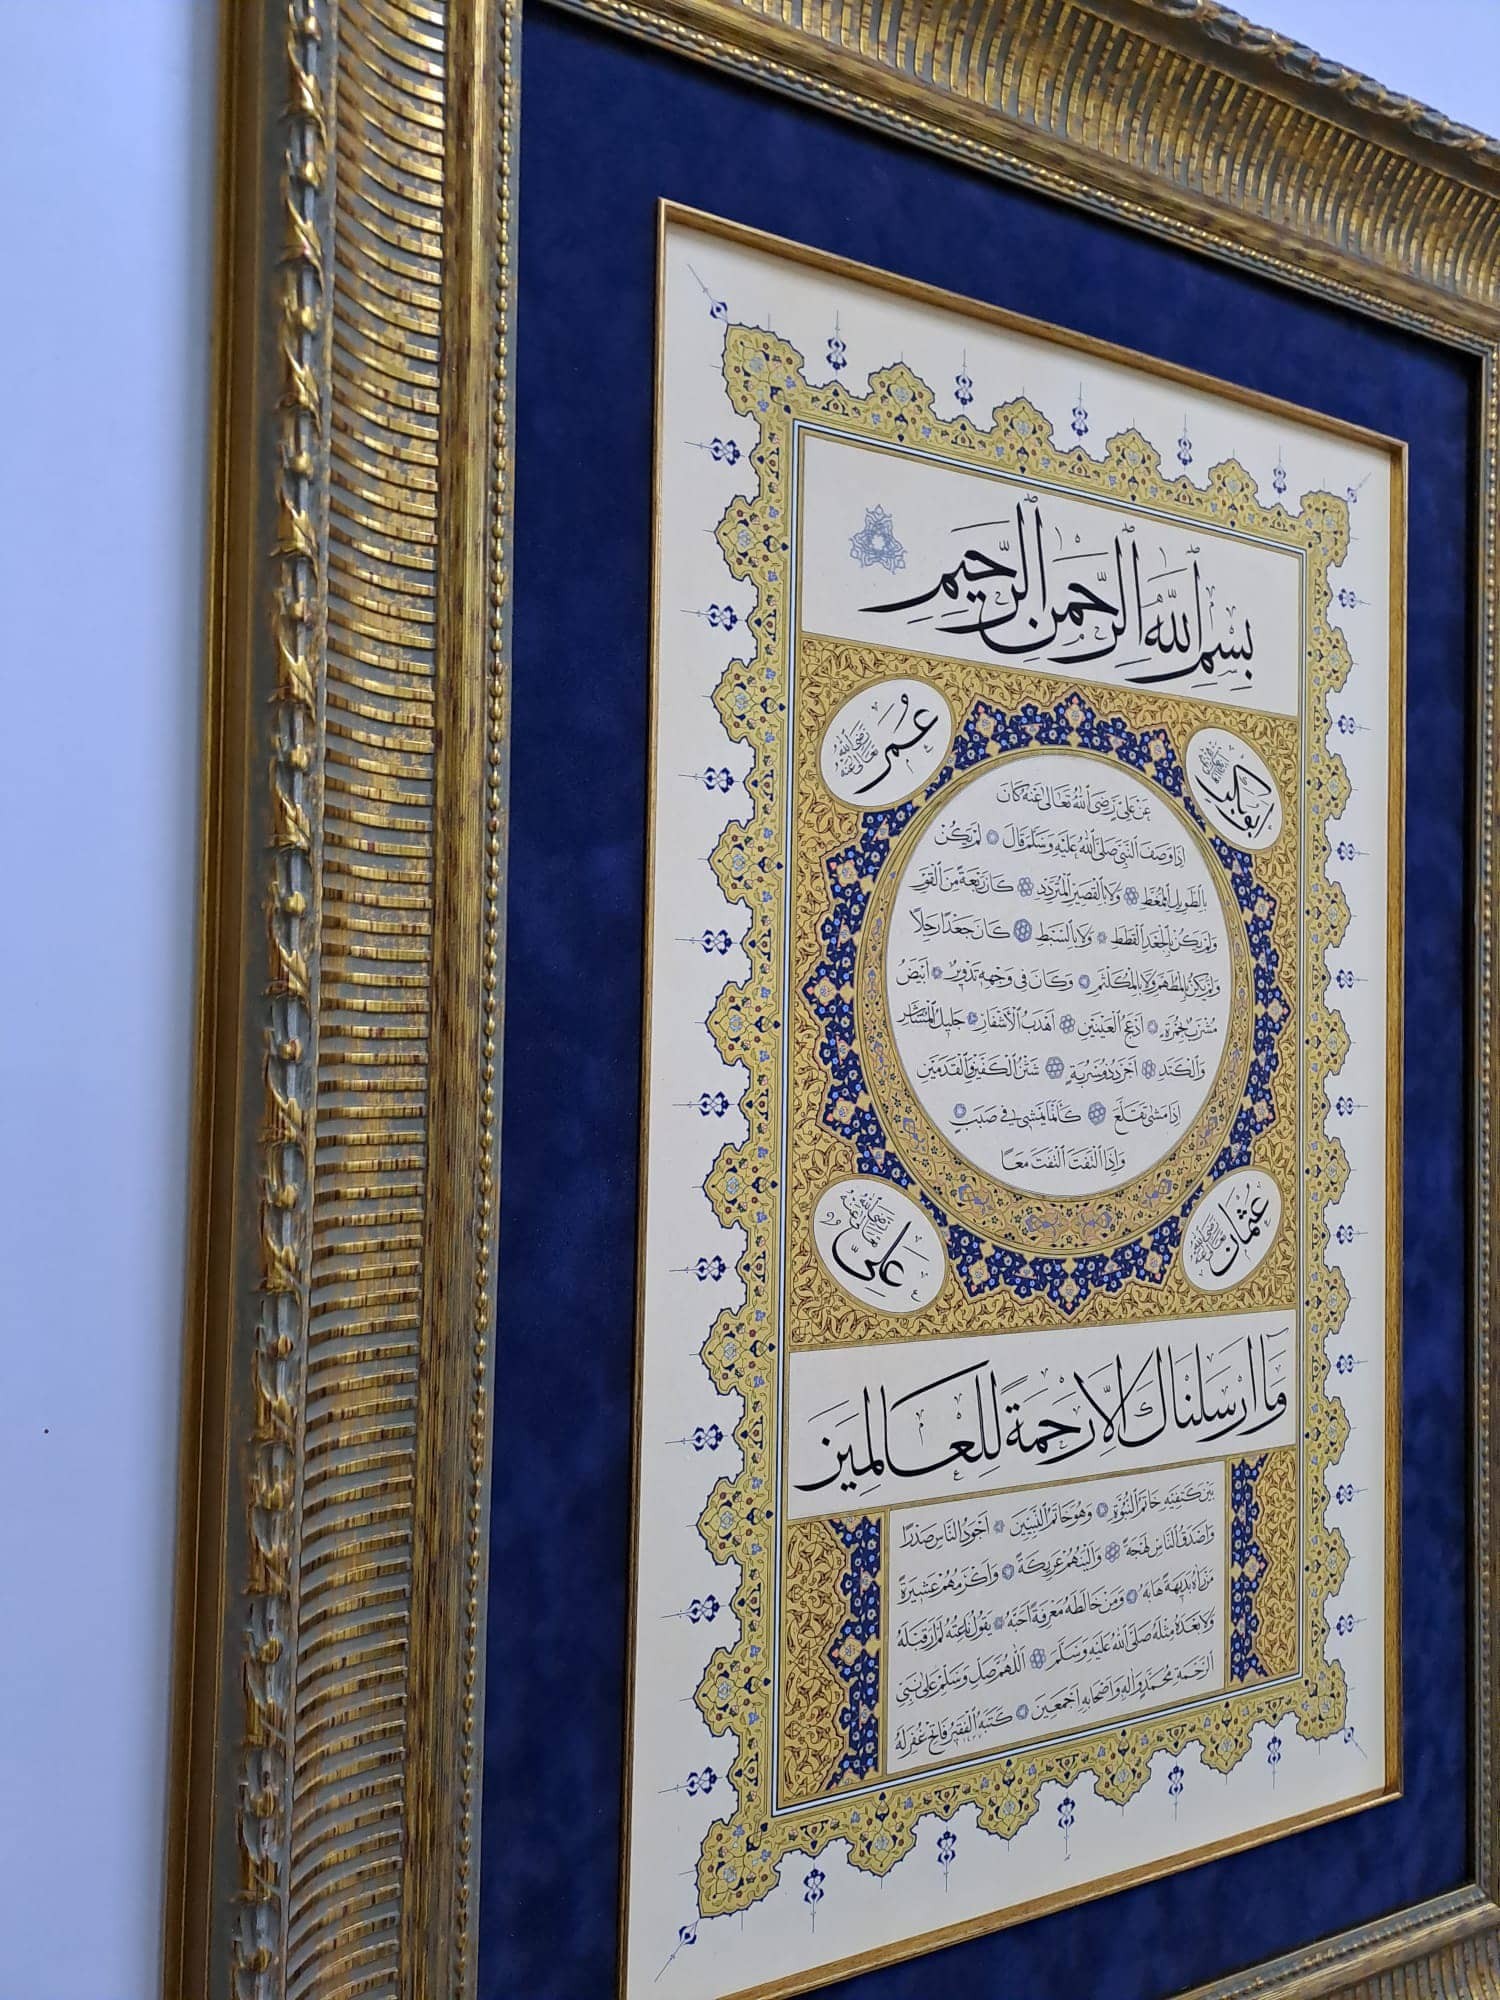 بسم الله الرحمن الرحيم
ابو بكر
عمر رضى الله تعالى عنه
عن علي رضى الله تعالى عنه كان
اذا وصف النبى صلى الله عليه وسلم قال لم يكن
بالطويل الممغط ولا بالقصير المتردد كان ربعة من القوم
ولم يكن بالجعد القطط ولا بالسبط كان جعدا رجلا
ولم يكن بالمطهم ولا بالمكلثم وكان فى وجهه تدوير ابيض
مشرب بحمرة ادعج العينين اهدب الأشفار جليل المشاش
والكتد اجرد ذو مسربة شثن الكفين والقدمين
اذا مشى تقلع كأنما يمشى في صبب
واذا التفت التفت معا
عثمان رضى الله تعالى عنه
على
وما ارسلناك الا رحمة للعالمين
بين كتفيه خاتم النبوة وهو خاتم النبيين اجود الناس صدرا
واصدق الناس لهجة والينهم عريكة واكرمهم عشيرة
من رآه بديهة هابه ومن خالطه معرفة احبه يقول ناعته لم ار قبله
ولا بعده مثله صلى الله عليه وسلم اللهم صل وسلم على نبي
الرحمة محمد وآله واصحابه اجمعين كتبه الفقير فاتح غفر له